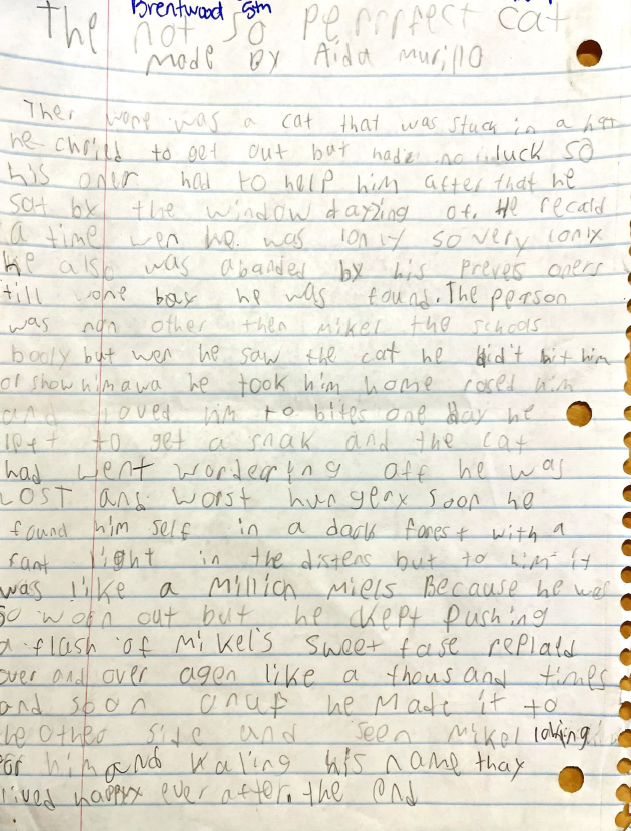 Brentwood 5th
The not so perrrfect cat
Made By Aida murillo
Ther wone was a cat that was stuck in a hat
he chried to get out but hade no luck so
his oner had to help him after that he
sat by the window dayzing of. He recald
a time wen he was lonly so very lonly
he also was abanded by his preves oners
till one bay he was found. The person
was non other then mikel the schools
booly but wen he saw the cat he didn't hit him
or show him awa he took him home rosed him
and loved him to bites one day he
left to get a snak and the cat
had went wondering off he was
LOST and worst hungery soon he
found him self in a dark forest with a
fant light in the distens but to him it
was like a Millich Miels Because he was
so worn out but he ckept pushing
a flash of Mikel's sweet fase replaid
over and over agen like a thousand times
and soon anuf he Made it to
the other side and seen Mikel loking
for him and kaling his name thay
lived happy ever after. the end